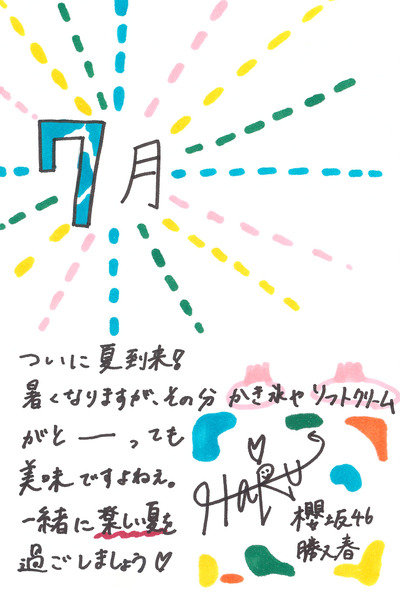 7月
ついに夏到来！
暑くなりますが、その分 かき氷や ソフトクリーム
がと――っても
美味ですよねぇ。
一緒に楽しい夏を
過ごしましょう♡
HARU
櫻坂46
勝又春